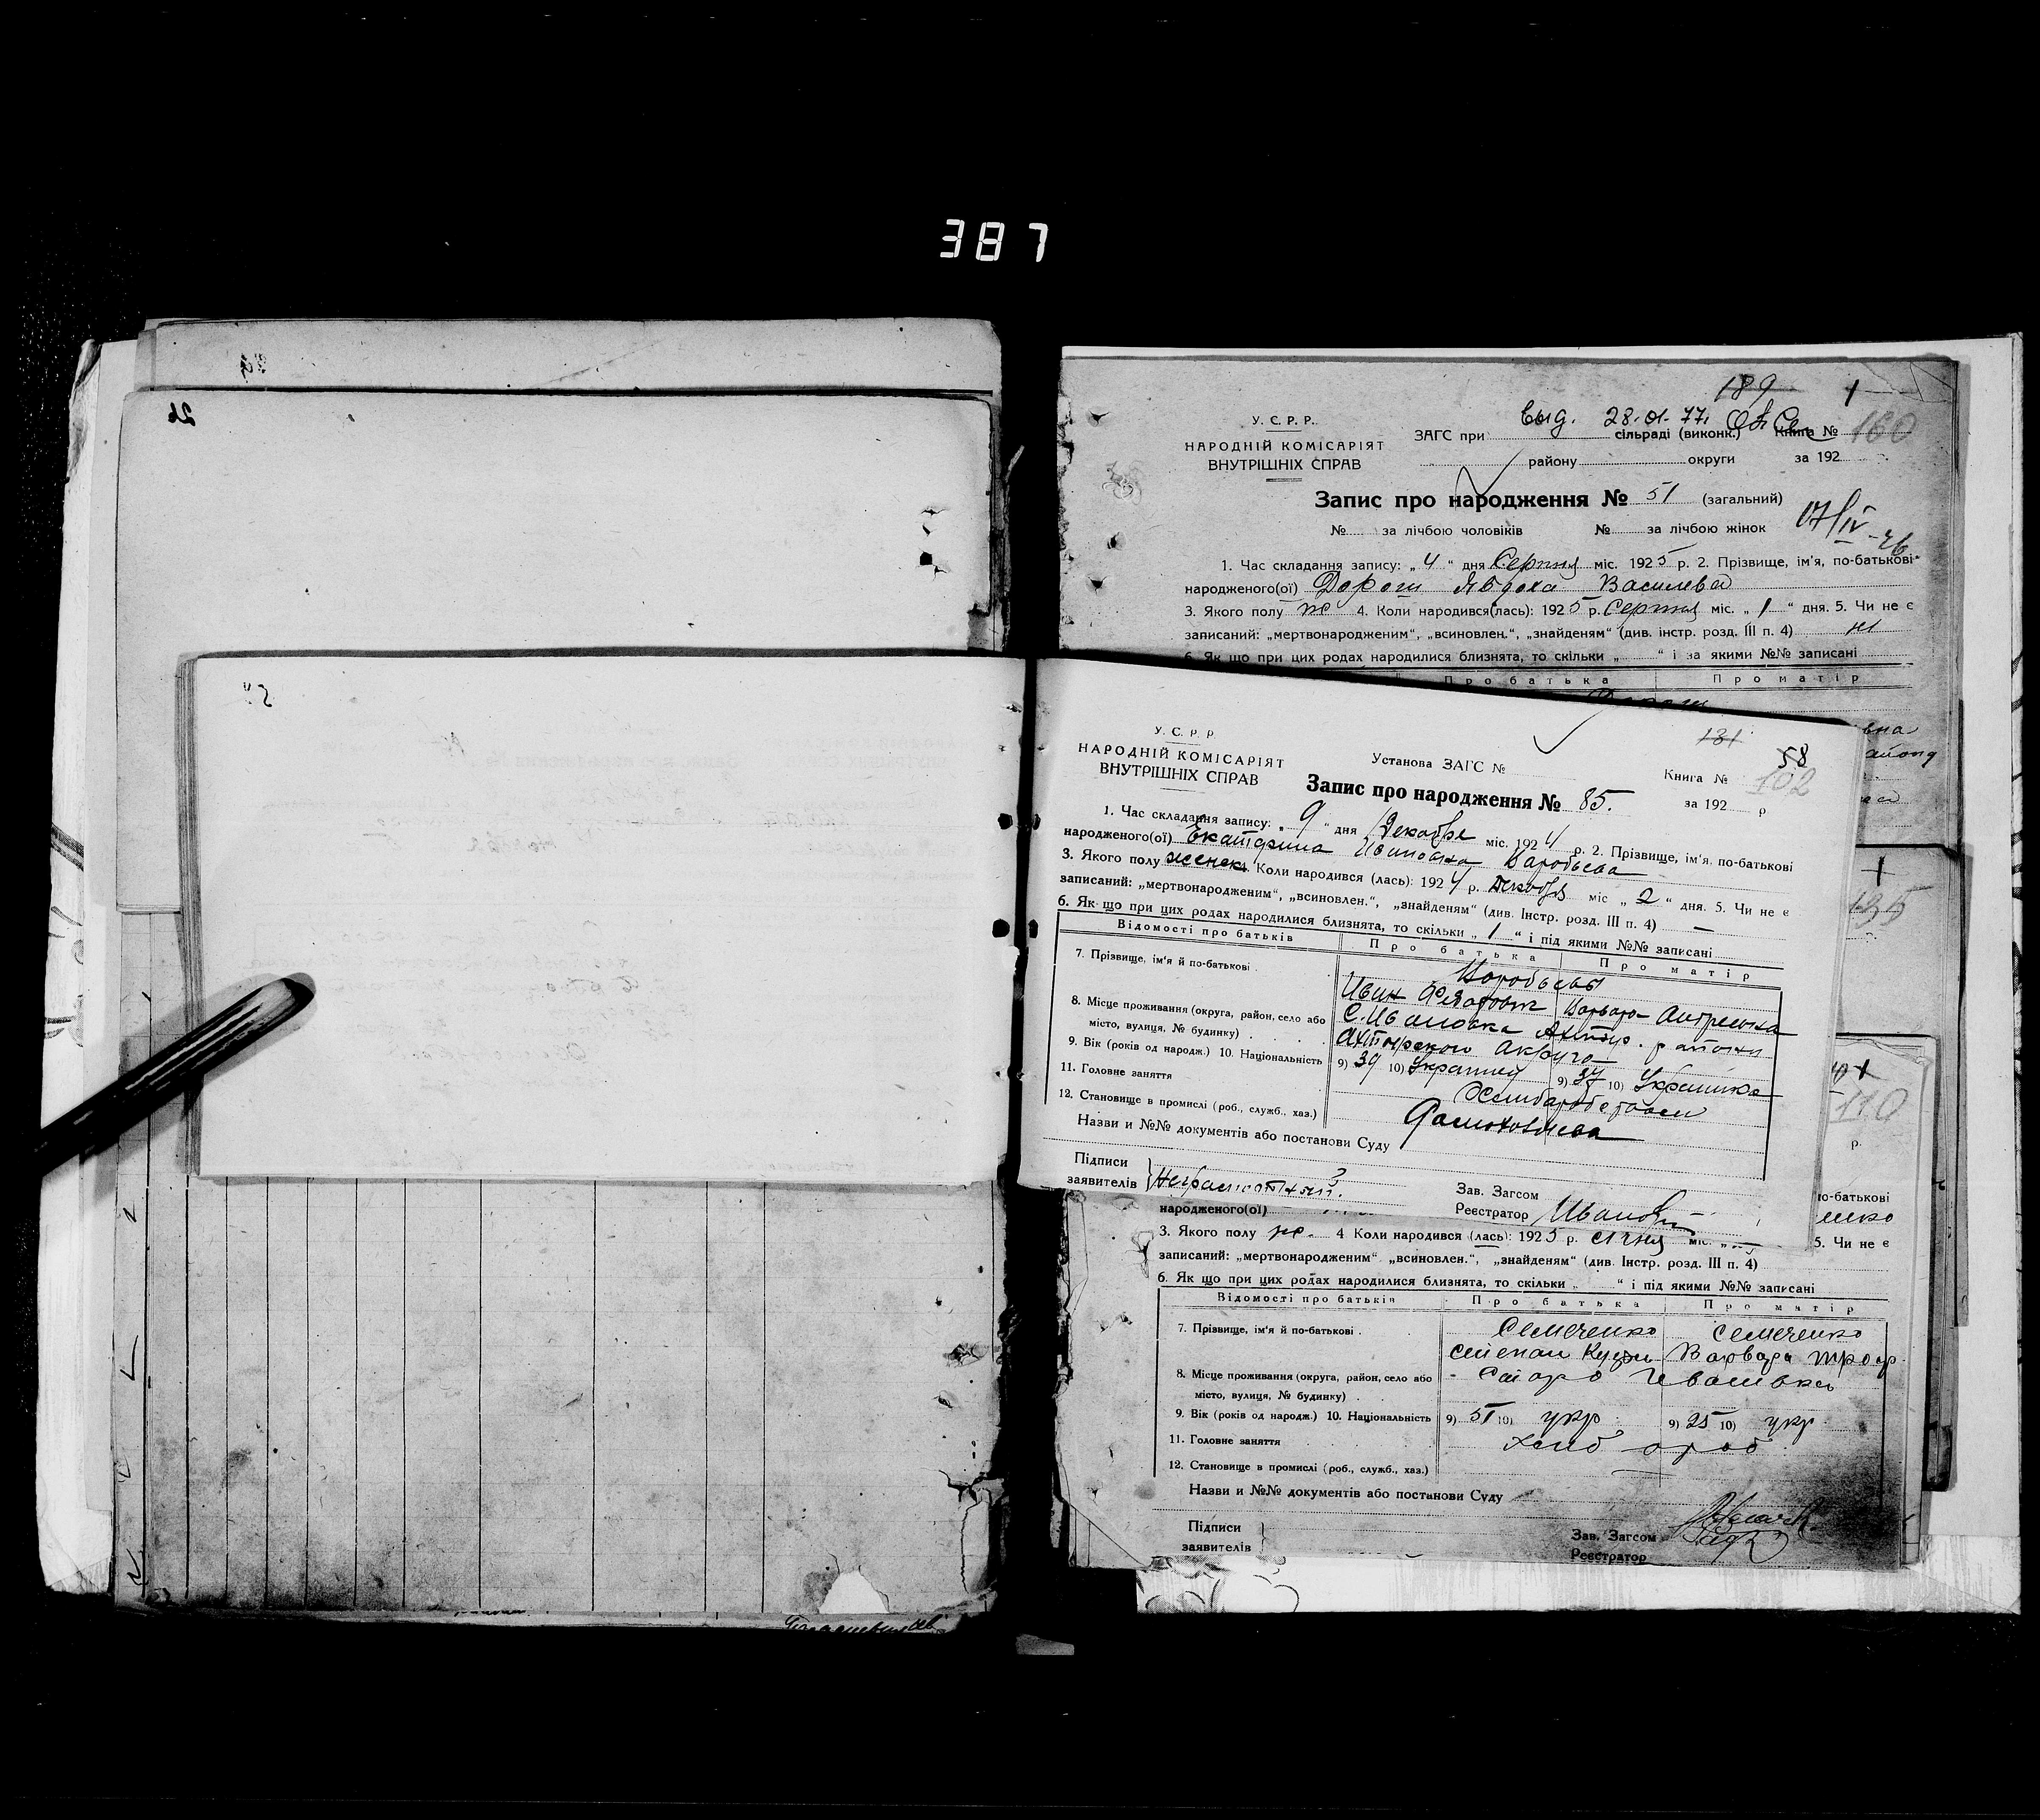 387
26
189 1
Выд. 28.01.77.
У. С. Р. Р.
НАРОДНІЙ КОМІСАРІЯТ
ВНУТРІШНІХ СПРАВ
ЗАГС при сільраді (виконк.) Книга № 160
району округи за 192
Запис про народження № 51 (загальний)
№ за лічбою чоловіків № за лічбою жінок 17/IV-26
1. Час складання запису: „ 4 “ дня Серпня міс. 1925 р. 2. Прізвище, ім'я, по-батькові
народженого(ої) Дорош Явдоха Василева
3. Якого полу ж 4. Коли народився(лась): 1925 р. Серпня міс. „ 1 “ дня. 5. Чи не є
записаний: „мертвонародженим“, „всиновлен.“, „знайденям“ (див. інстр. розд. III п. 4) ні
6. Як що при цих родах народилися близнята, то скільки „ “ і за якими №№ записані
Про батька Про матір
У. С. Р. Р.
НАРОДНІЙ КОМІСАРІЯТ
ВНУТРІШНІХ СПРАВ
Установа ЗАГС №
131 58
Книга № 102
за 192 р
Запис про народження № 85.
1. Час складання запису: „ 9 “ дня Декабря міс. 1924 р. 2. Прізвище, ім'я, по-батькові
народженого(ої) Екатерина Ивановна Воробьева
3. Якого полу женск. Коли народився (лась): 1924 р. Декабря міс „ 2 “ дня. 5. Чи не є
записаний: „мертвонародженим“, „всиновлен.“, „знайденям“ (див. Інстр. розд. III п. 4) —
6. Як-що при цих родах народилися близнята, то скільки „ 1 “ і під якими №№ записані
Відомості про батьків Про батька Про матір
7. Прізвище, ім'я й по-батькові Воробьевы
Иван Варвара Андреевна
8. Місце проживання (округа, район, село або С. Ивановка Ахтыр. района
місто, вулиця, № будинку) Ахтырского Округа
9. Вік (років од народж.) 10. Національність 9) 39 10) Украинец 9) 37 10) Украинка
11. Головне заняття
12. Становище в промислі (роб., служб., хаз.)
Назви и №№ документів або постанови Суду
Підписи
заявителів Неграмотный.
Зав. Загсом
Реєстратор Иванов
народженого(ої)
135
110
р.
по-батькові
3. Якого полу ж. 4 Коли народився (лась): 1925 р. січня міс. 5. Чи не є
записаний: „мертвонародженим“ „всиновлен.“, „знайденям“ (див. Інстр. розд. III п. 4)
6. Як що при цих родах народилися близнята, то скільки „ “ і під якими №№ записані
Відомості про батьків Про батька Про матір
7. Прізвище, ім'я й по-батькові Семченко Семченко
Степан Кузм Варвара Троф
8. Місце проживання (округа, район, село або Старо Ивановка
місто, вулиця, № будинку)
9. Вік (років од народж.) 10. Національність 9) 51 10) укр 9) 25 10) укр.
11. Головне заняття хліб ороб
12. Становище в промислі (роб., служб., хаз.)
Назви и №№ документів або постанови Суду
Підписи
заявителів
Зав. Загсом
Реєстратор